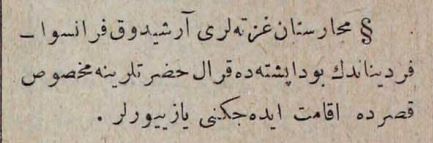 § مجارستان غزته‌لری آرشیدوق فرانسوا –
فردیناندك بوداپشته‌ده قرال حضرتلرینه مخصوص
قصرده اقامت ایده‌جکنی یازییورلر .